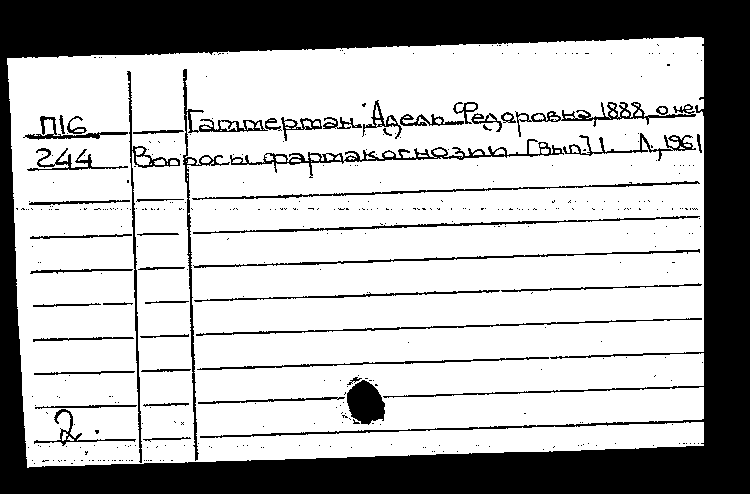 П16 Гаммерман, Адель Федоровна, 1888, о ней
244 Вопросы фармакогнозии [Вып.] 1. Л., 1961
2.